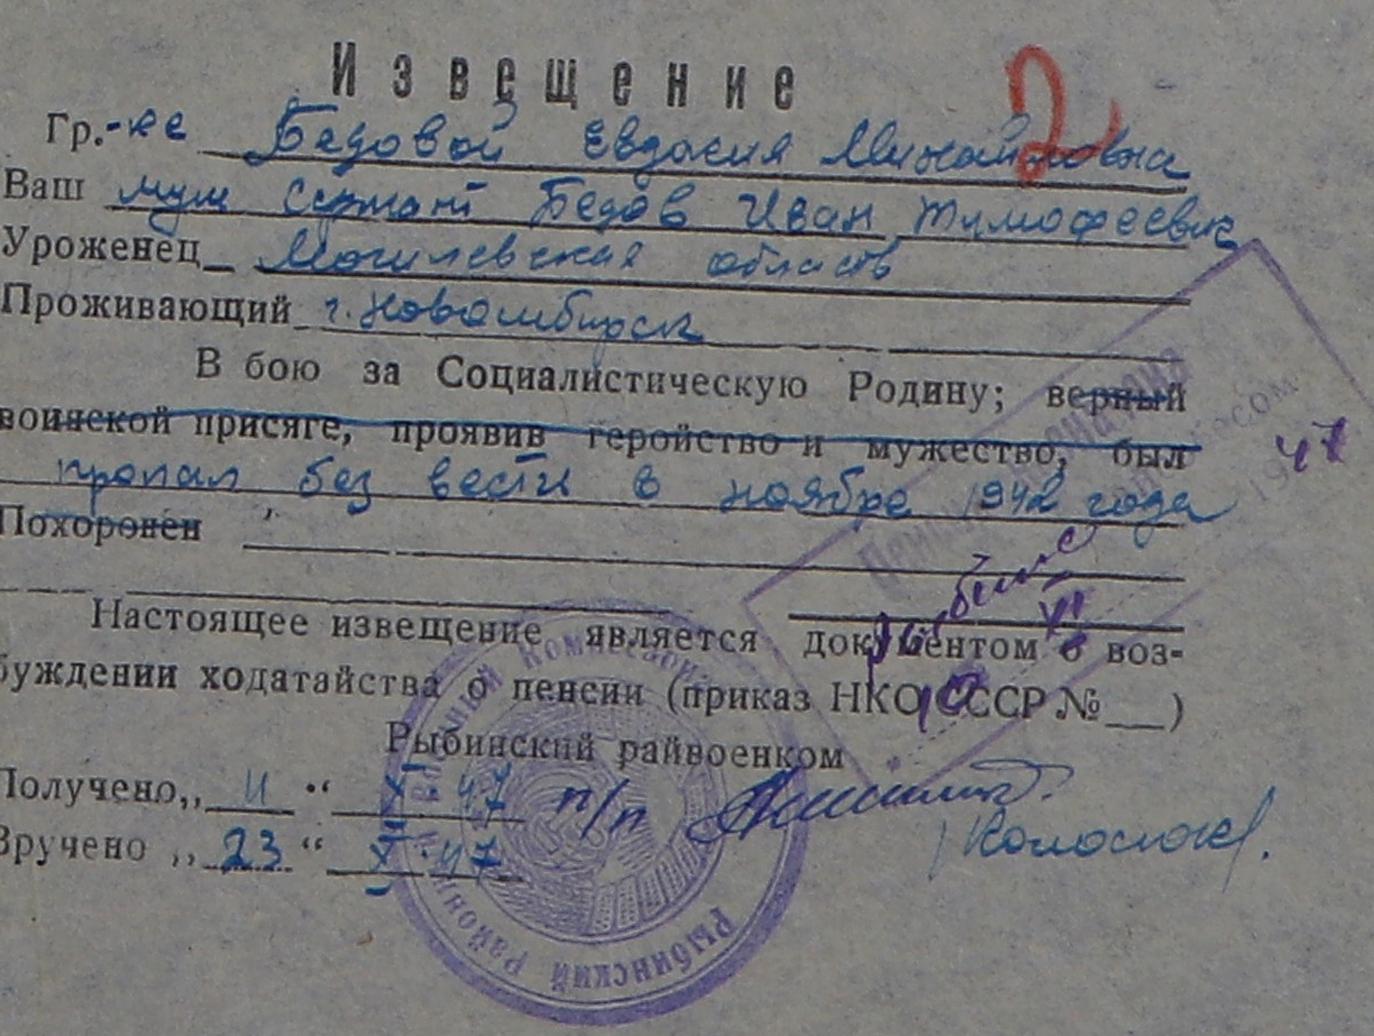 Извещение
2
Гр.-ке Бедовой Евдокия Михайловна
Ваш муж Сержант Бедов Иван Тимофеевич
Уроженец Могилевская область
Проживающий г. Новосибирск
В бою за Социалистическую Родину; верный
воинской присяге, проявив геройство и мужество, был
пропал без вести в ноябре 1942 года
47
Похоронен
Настоящее извещение является документом о воз-
буждении ходатайства о пенсии (приказ НКО СССР №__)
Рыбинский райвоенком
Получено „ 11 “ X 47 п/п
Вручено „ 23 “ X. 47
Рыбинский Район